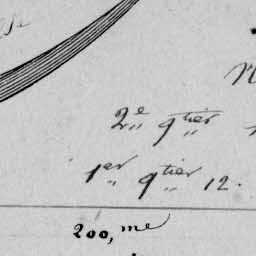 2e qtier
1er qtier 12.
200, me